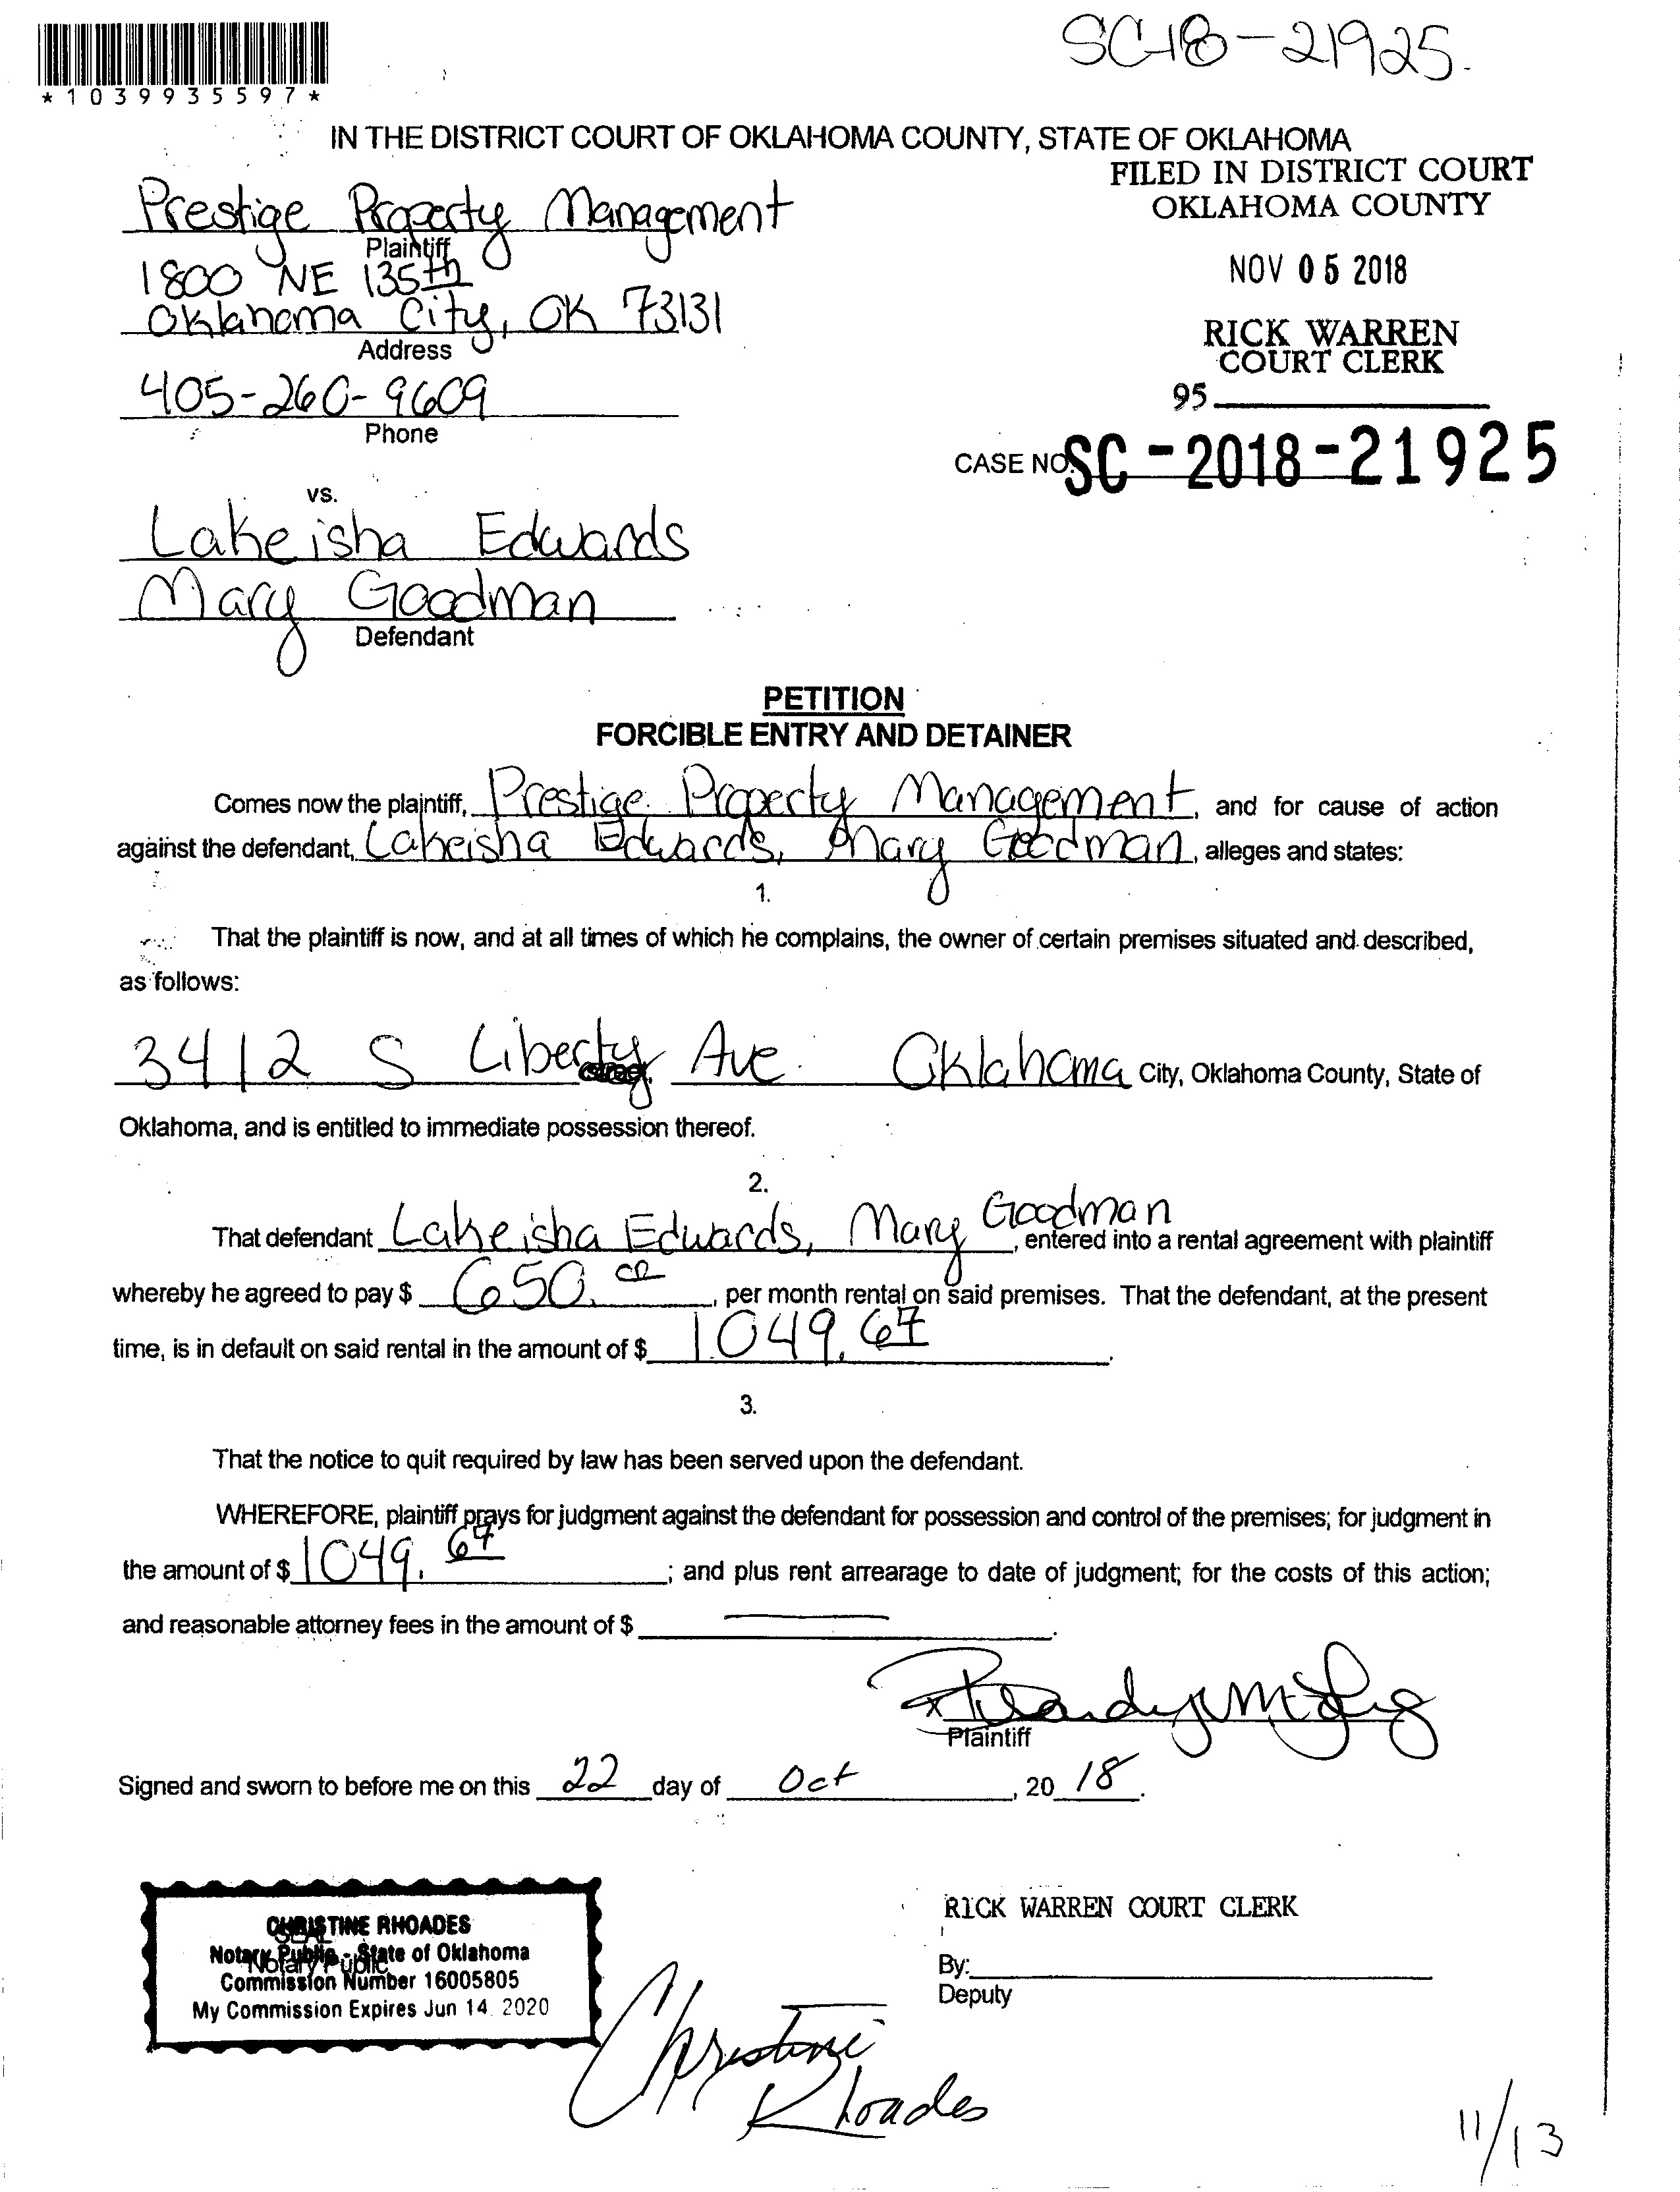 SC-18-21925.
*1039935597*
IN THE DISTRICT COURT OF OKLAHOMA COUNTY, STATE OF OKLAHOMA
FILED IN DISTRICT COURT
OKLAHOMA COUNTY
NOV 05 2018
RICK WARREN
COURT CLERK
95
CASE NO. SC-2018-21925
Prestige Property Management
Plaintiff
1800 NE 135th
Oklahoma City, OK 73131
Address
405-260-9609
Phone
vs.
Lakeisha Edwards
Mary Goodman
Defendant
PETITION
FORCIBLE ENTRY AND DETAINER
Comes now the plaintiff, Prestige Property Management, and for cause of action
against the defendant, Lakeisha Edwards, Mary Goodman, alleges and states:
1.
That the plaintiff is now, and at all times of which he complains, the owner of certain premises situated and described,
as follows:
3412 S Liberty Ave. Oklahoma City, Oklahoma County, State of
Oklahoma, and is entitled to immediate possession thereof.
2.
That defendant Lakeisha Edwards, Mary Goodman, entered into a rental agreement with plaintiff
whereby he agreed to pay $ 650.00, per month rental on said premises. That the defendant, at the present
time, is in default on said rental in the amount of $ 1049.67.
3.
That the notice to quit required by law has been served upon the defendant.
WHEREFORE, plaintiff prays for judgment against the defendant for possession and control of the premises; for judgment in
the amount of $ 1049.67; and plus rent arrearage to date of judgment; for the costs of this action;
and reasonable attorney fees in the amount of $ —.
x
Plaintiff
Signed and sworn to before me on this 22 day of Oct, 20 18.
CHRISTINE RHOADES
SEAL
Notary Public - State of Oklahoma
Notary Public
Commission Number 16005805
My Commission Expires Jun 14, 2020
RICK WARREN COURT CLERK
By:
Deputy
Christine
Rhoades
11/13